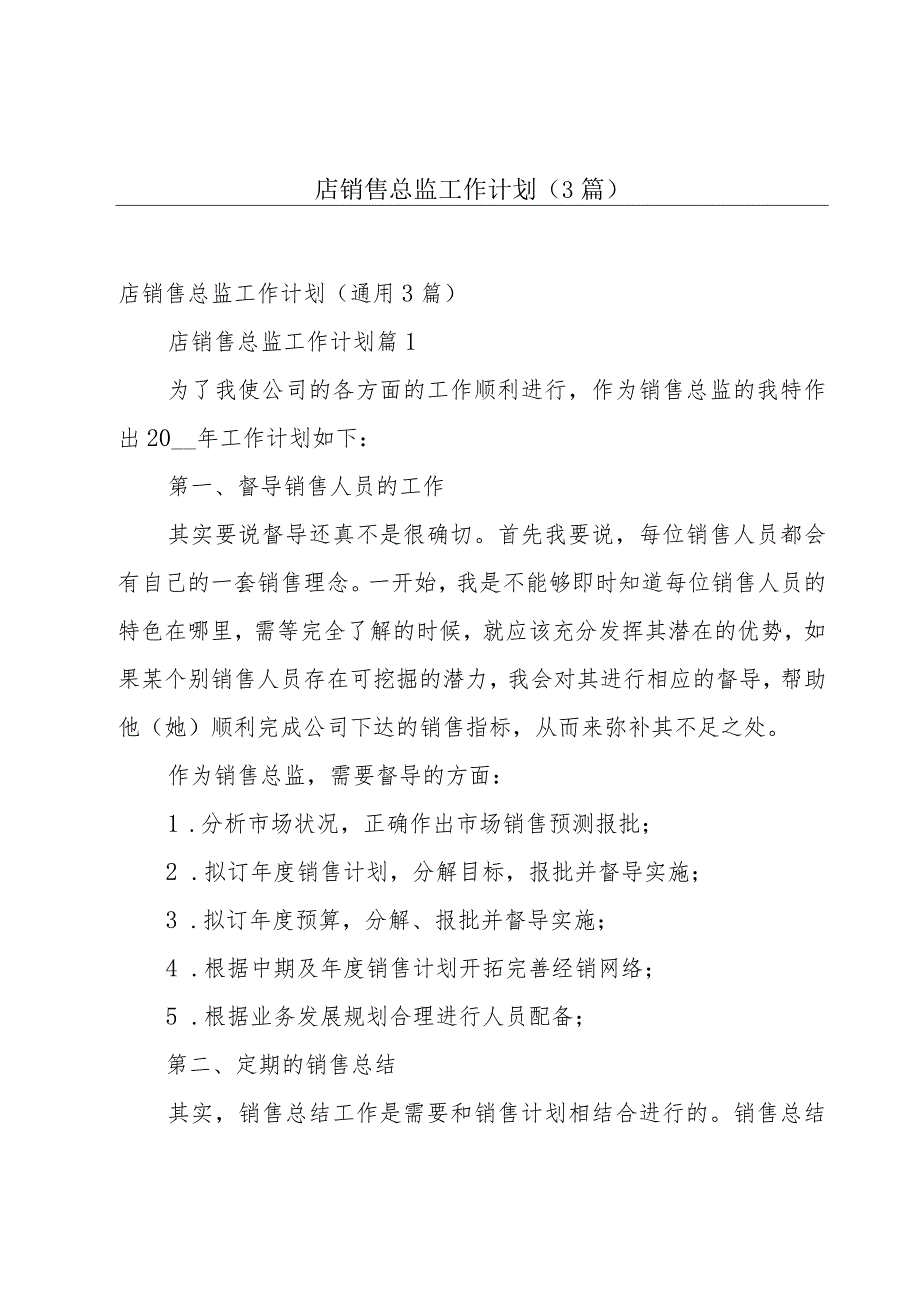 店销售总监工作计划（3 篇）
店销售总监工作计划（通用 3 篇）
店销售总监工作计划篇 1
为了我使公司的各方面的工作顺利进行，作为销售总监的我特作
出 20__年工作计划如下：
第一、督导销售人员的工作
其实要说督导还真不是很确切。首先我要说，每位销售人员都会
有自己的一套销售理念。一开始，我是不能够即时知道每位销售人员的
特色在哪里，需等完全了解的时候，就应该充分发挥其潜在的优势，如
果某个别销售人员存在可挖掘的潜力，我会对其进行相应的督导，帮助
他（她）顺利完成公司下达的销售指标，从而来弥补其不足之处。
作为销售总监，需要督导的方面：
1 .分析市场状况，正确作出市场销售预测报批；
2 .拟订年度销售计划，分解目标，报批并督导实施；
3 .拟订年度预算，分解、报批并督导实施；
4 .根据中期及年度销售计划开拓完善经销网络；
5 .根据业务发展规划合理进行人员配备；
第二、定期的销售总结
其实，销售总结工作是需要和销售计划相结合进行的。销售总结